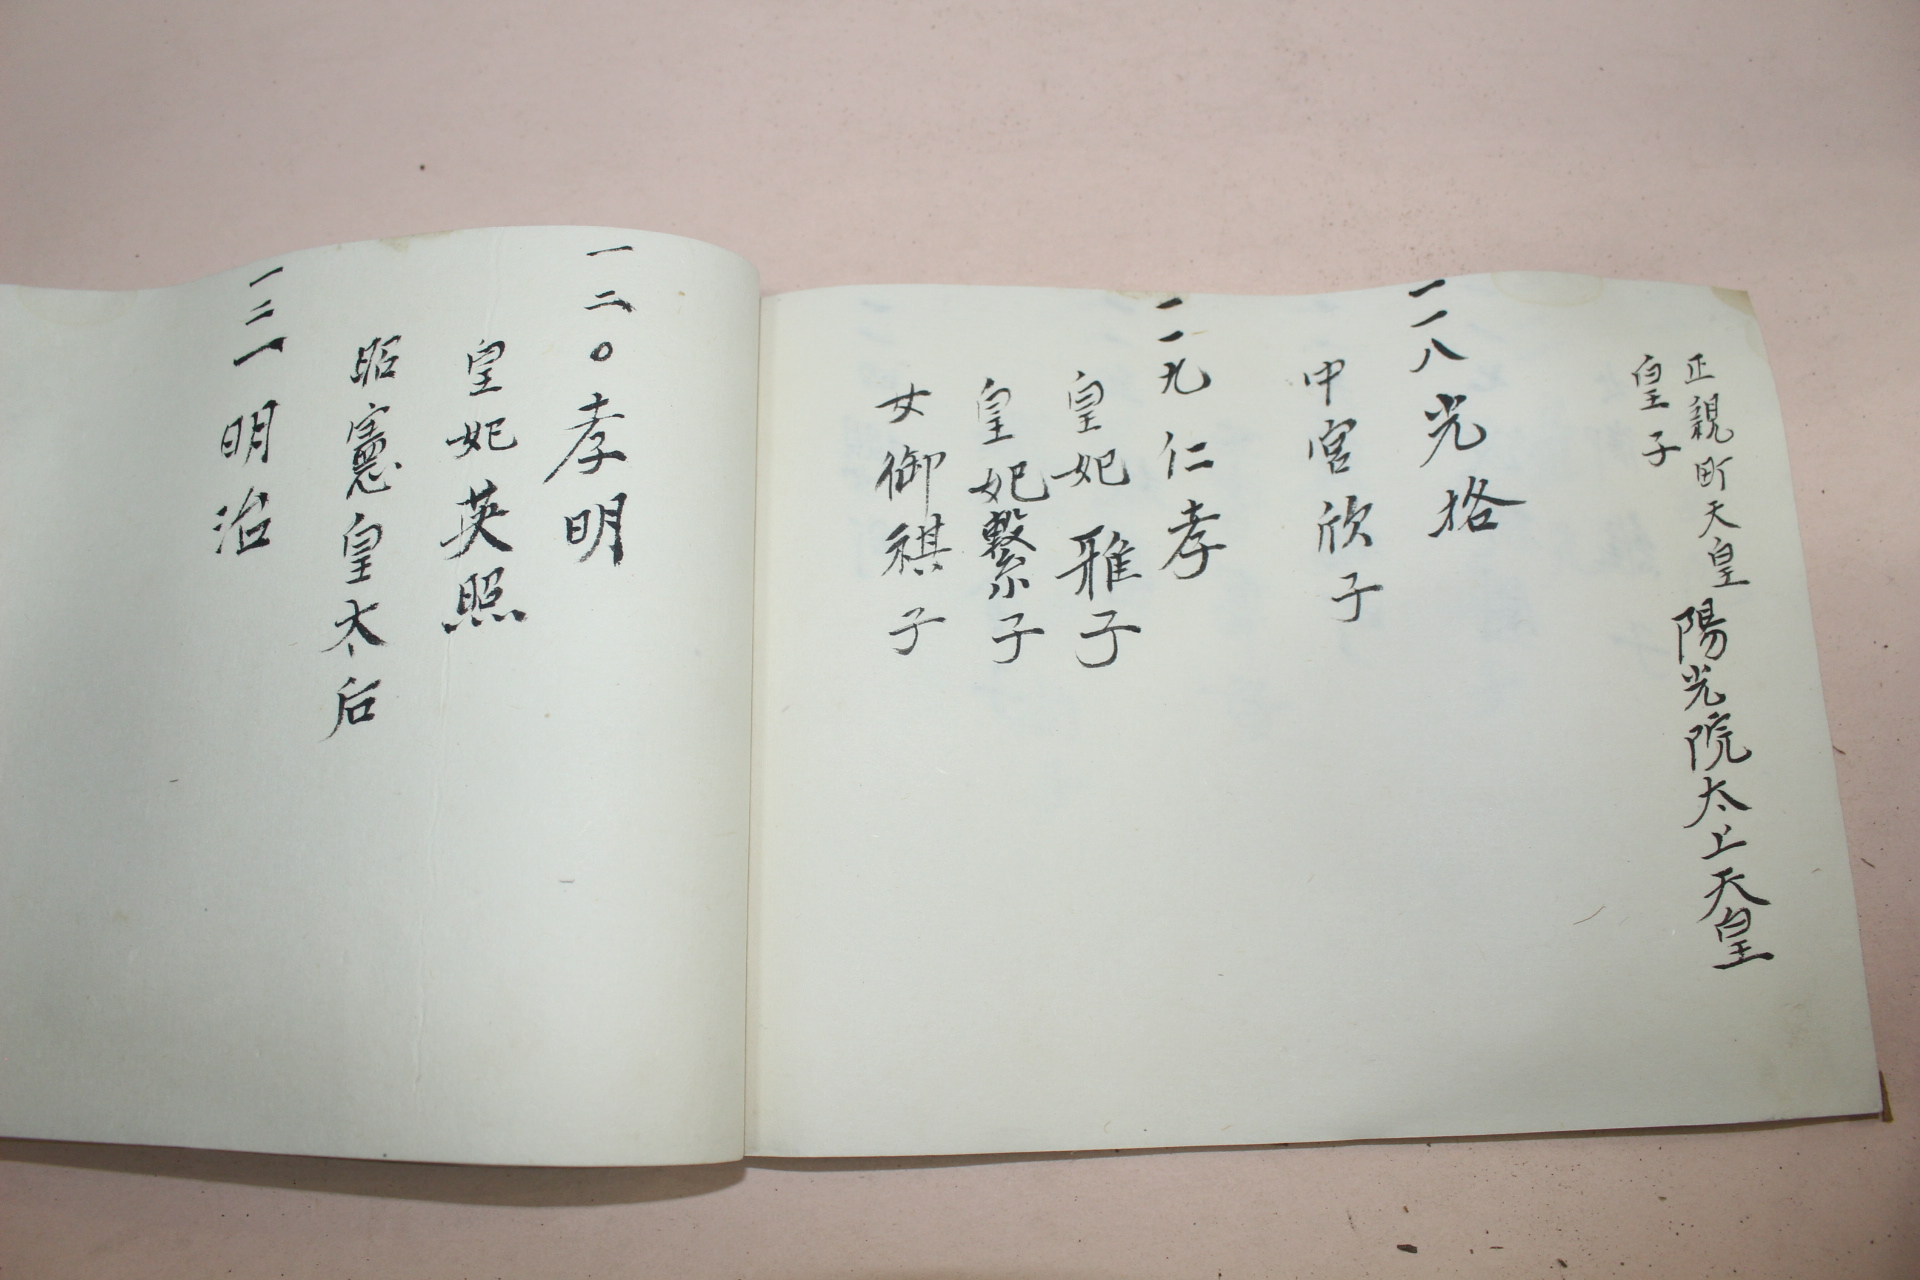 正親町天皇
皇子
陽光院太上天皇
一一八光格
中宮欣子
一一九仁孝
皇妃雅子
皇妃繋子
女御祺子
一二〇孝明
皇妃英照
昭憲皇太后
一二一明治